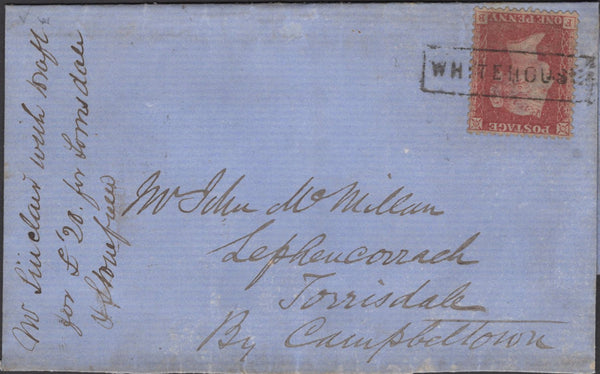 WHITEHOUSE
POSTAGE
ONE PENNY
Mr John McMillan
Lephencorrach
Torrisdale
By Campbeltown
Mr Sinclair with draft
for £20. for Torrisdale
& Stonefield